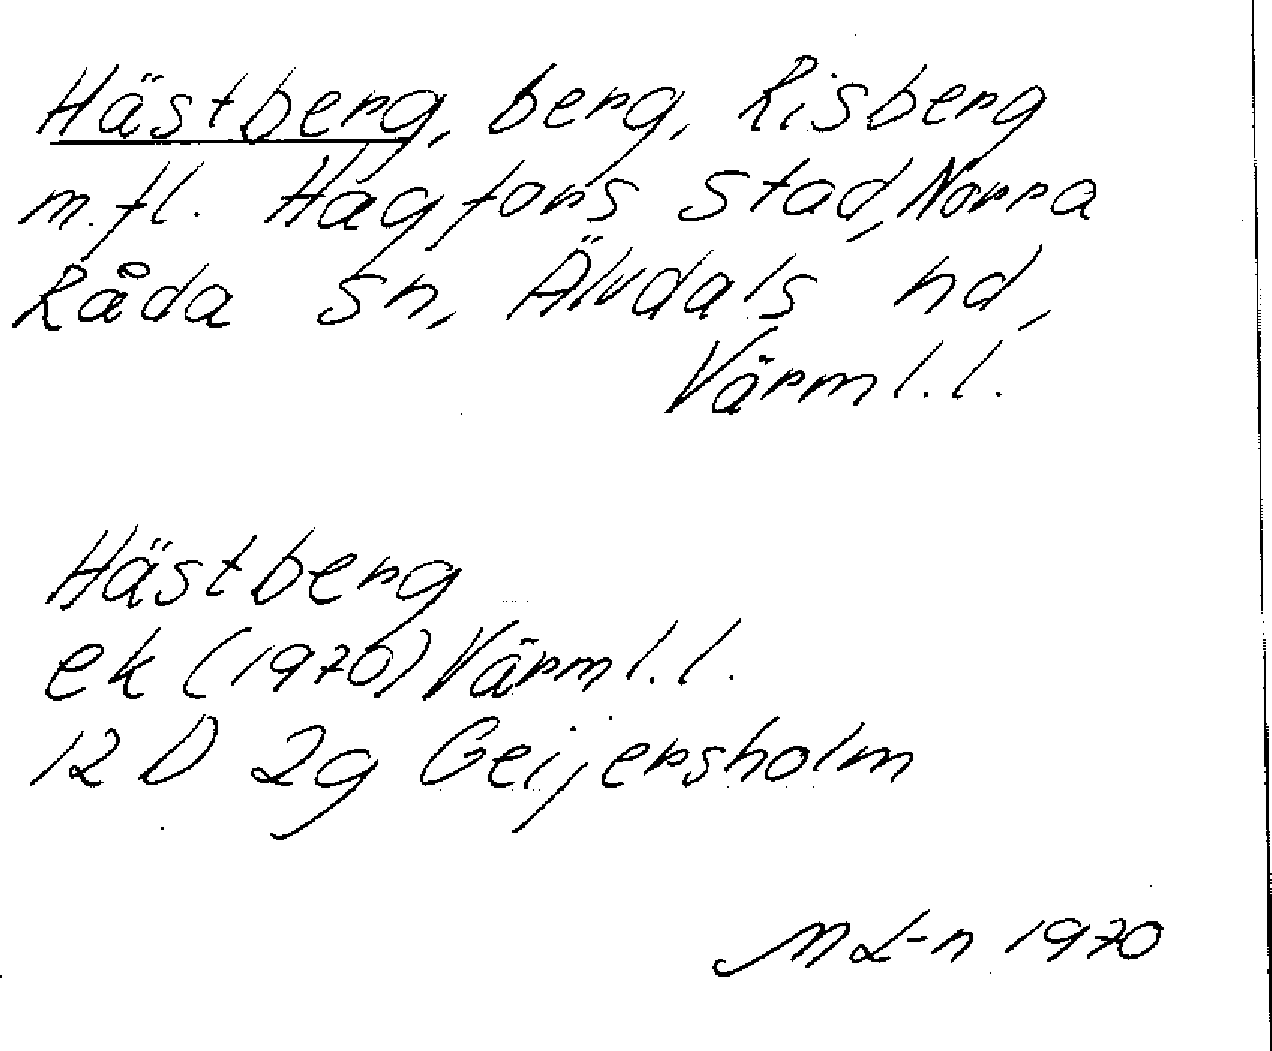 Hästberg, berg, Risberg
m.fl. Hagfors stad, Norra
Råda sn, Älvdals hd,
Värml.l.
Hästberg
ek (1970) Värml.l.
12 D 2g Geijersholm
ML-n 1970